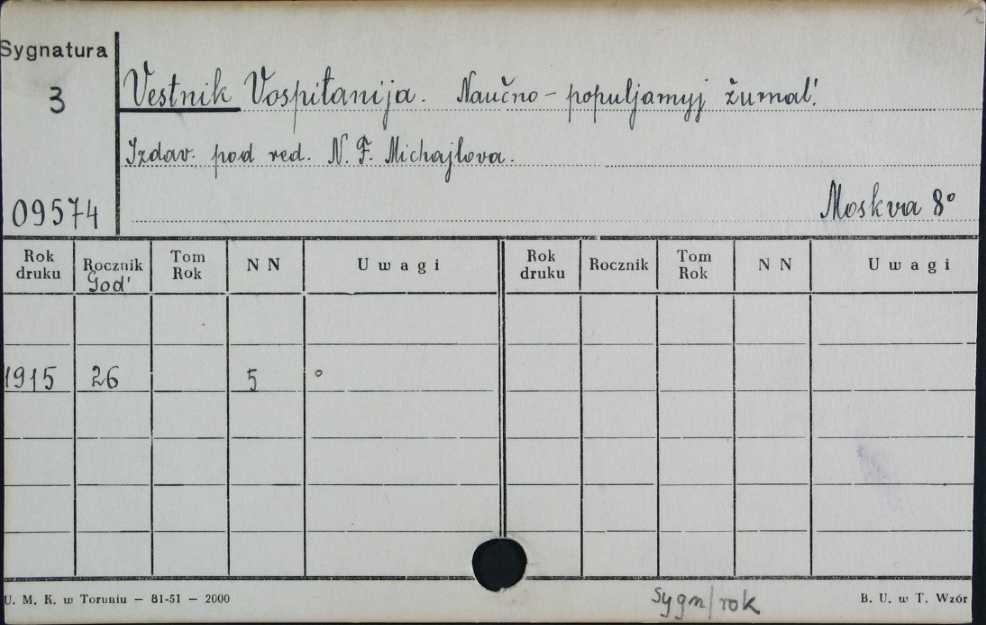 Sygnatura
3
09574
Vestnik Vospitanija. Naučno-populjarnyj žurnal'.
Izdav. pod red. N. F. Michajlova.
Moskva 8°
Rok druku Rocznik God' Tom Rok N N Uwagi Rok druku Rocznik Tom Rok N N Uwagi
1915 26 5 °
U. M. K. w Toruniu — 81-51 — 2000
Sygn/rok
B. U. w T. Wzór